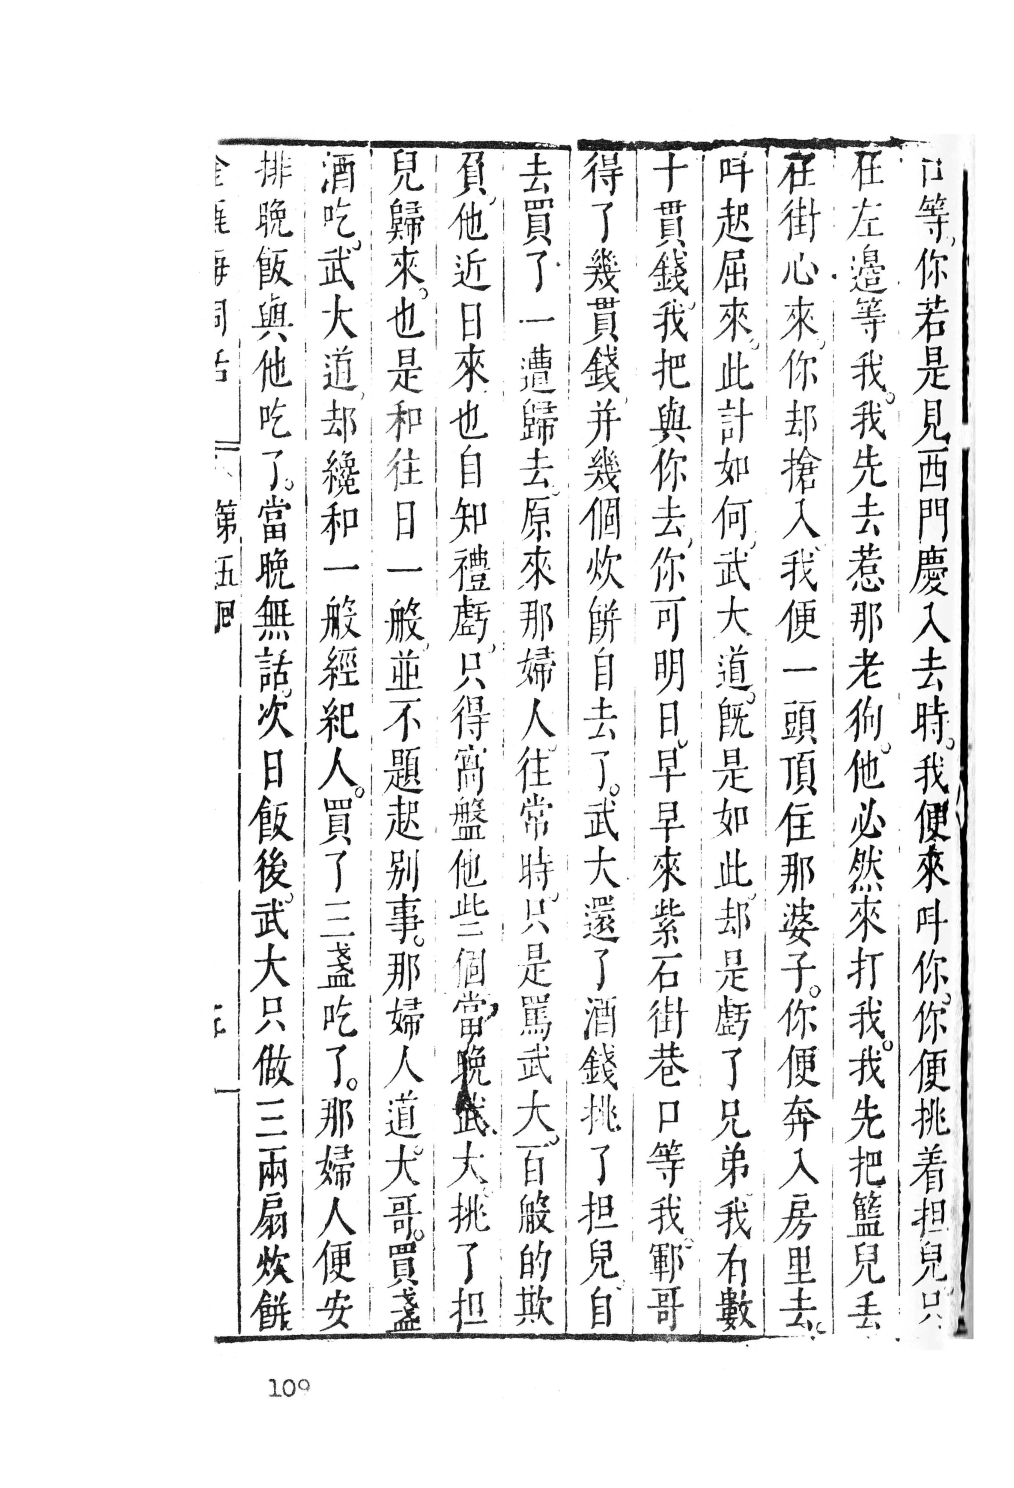 口等。你若是見西門慶入去時。我便來呌你。你便挑着担兒只
在左邊等我。我先去惹那老狗。他必然來打我。我先把籃兒丟
在街心來。你却搶入。我便一頭頂住那婆子。你便奔入房里去。
呌起屈來。此計如何。武大道。旣是如此。却是虧了兄弟。我有數
十貫錢。我把與你去。你可明日。早早來紫石街巷口等我。鄆哥
得了幾貫錢。并幾個炊餅。自去了。武大還了酒錢。挑了担兒。自
去買了一遭歸去。原來那婦人。往常時。只是罵武大。百般的欺
負他。近日來也自知禮虧。只得窩盤他些個。當晚武大挑了担
兒歸來。也是和往日一般。並不題起别事。那婦人道。大哥。買盞
酒吃。武大道。却纔和一般經紀人。買了三盞吃了。那婦人便安
排晚飯與他吃了。當晚無話。次日飯後。武大只做三兩扇炊餅。
第五回
109